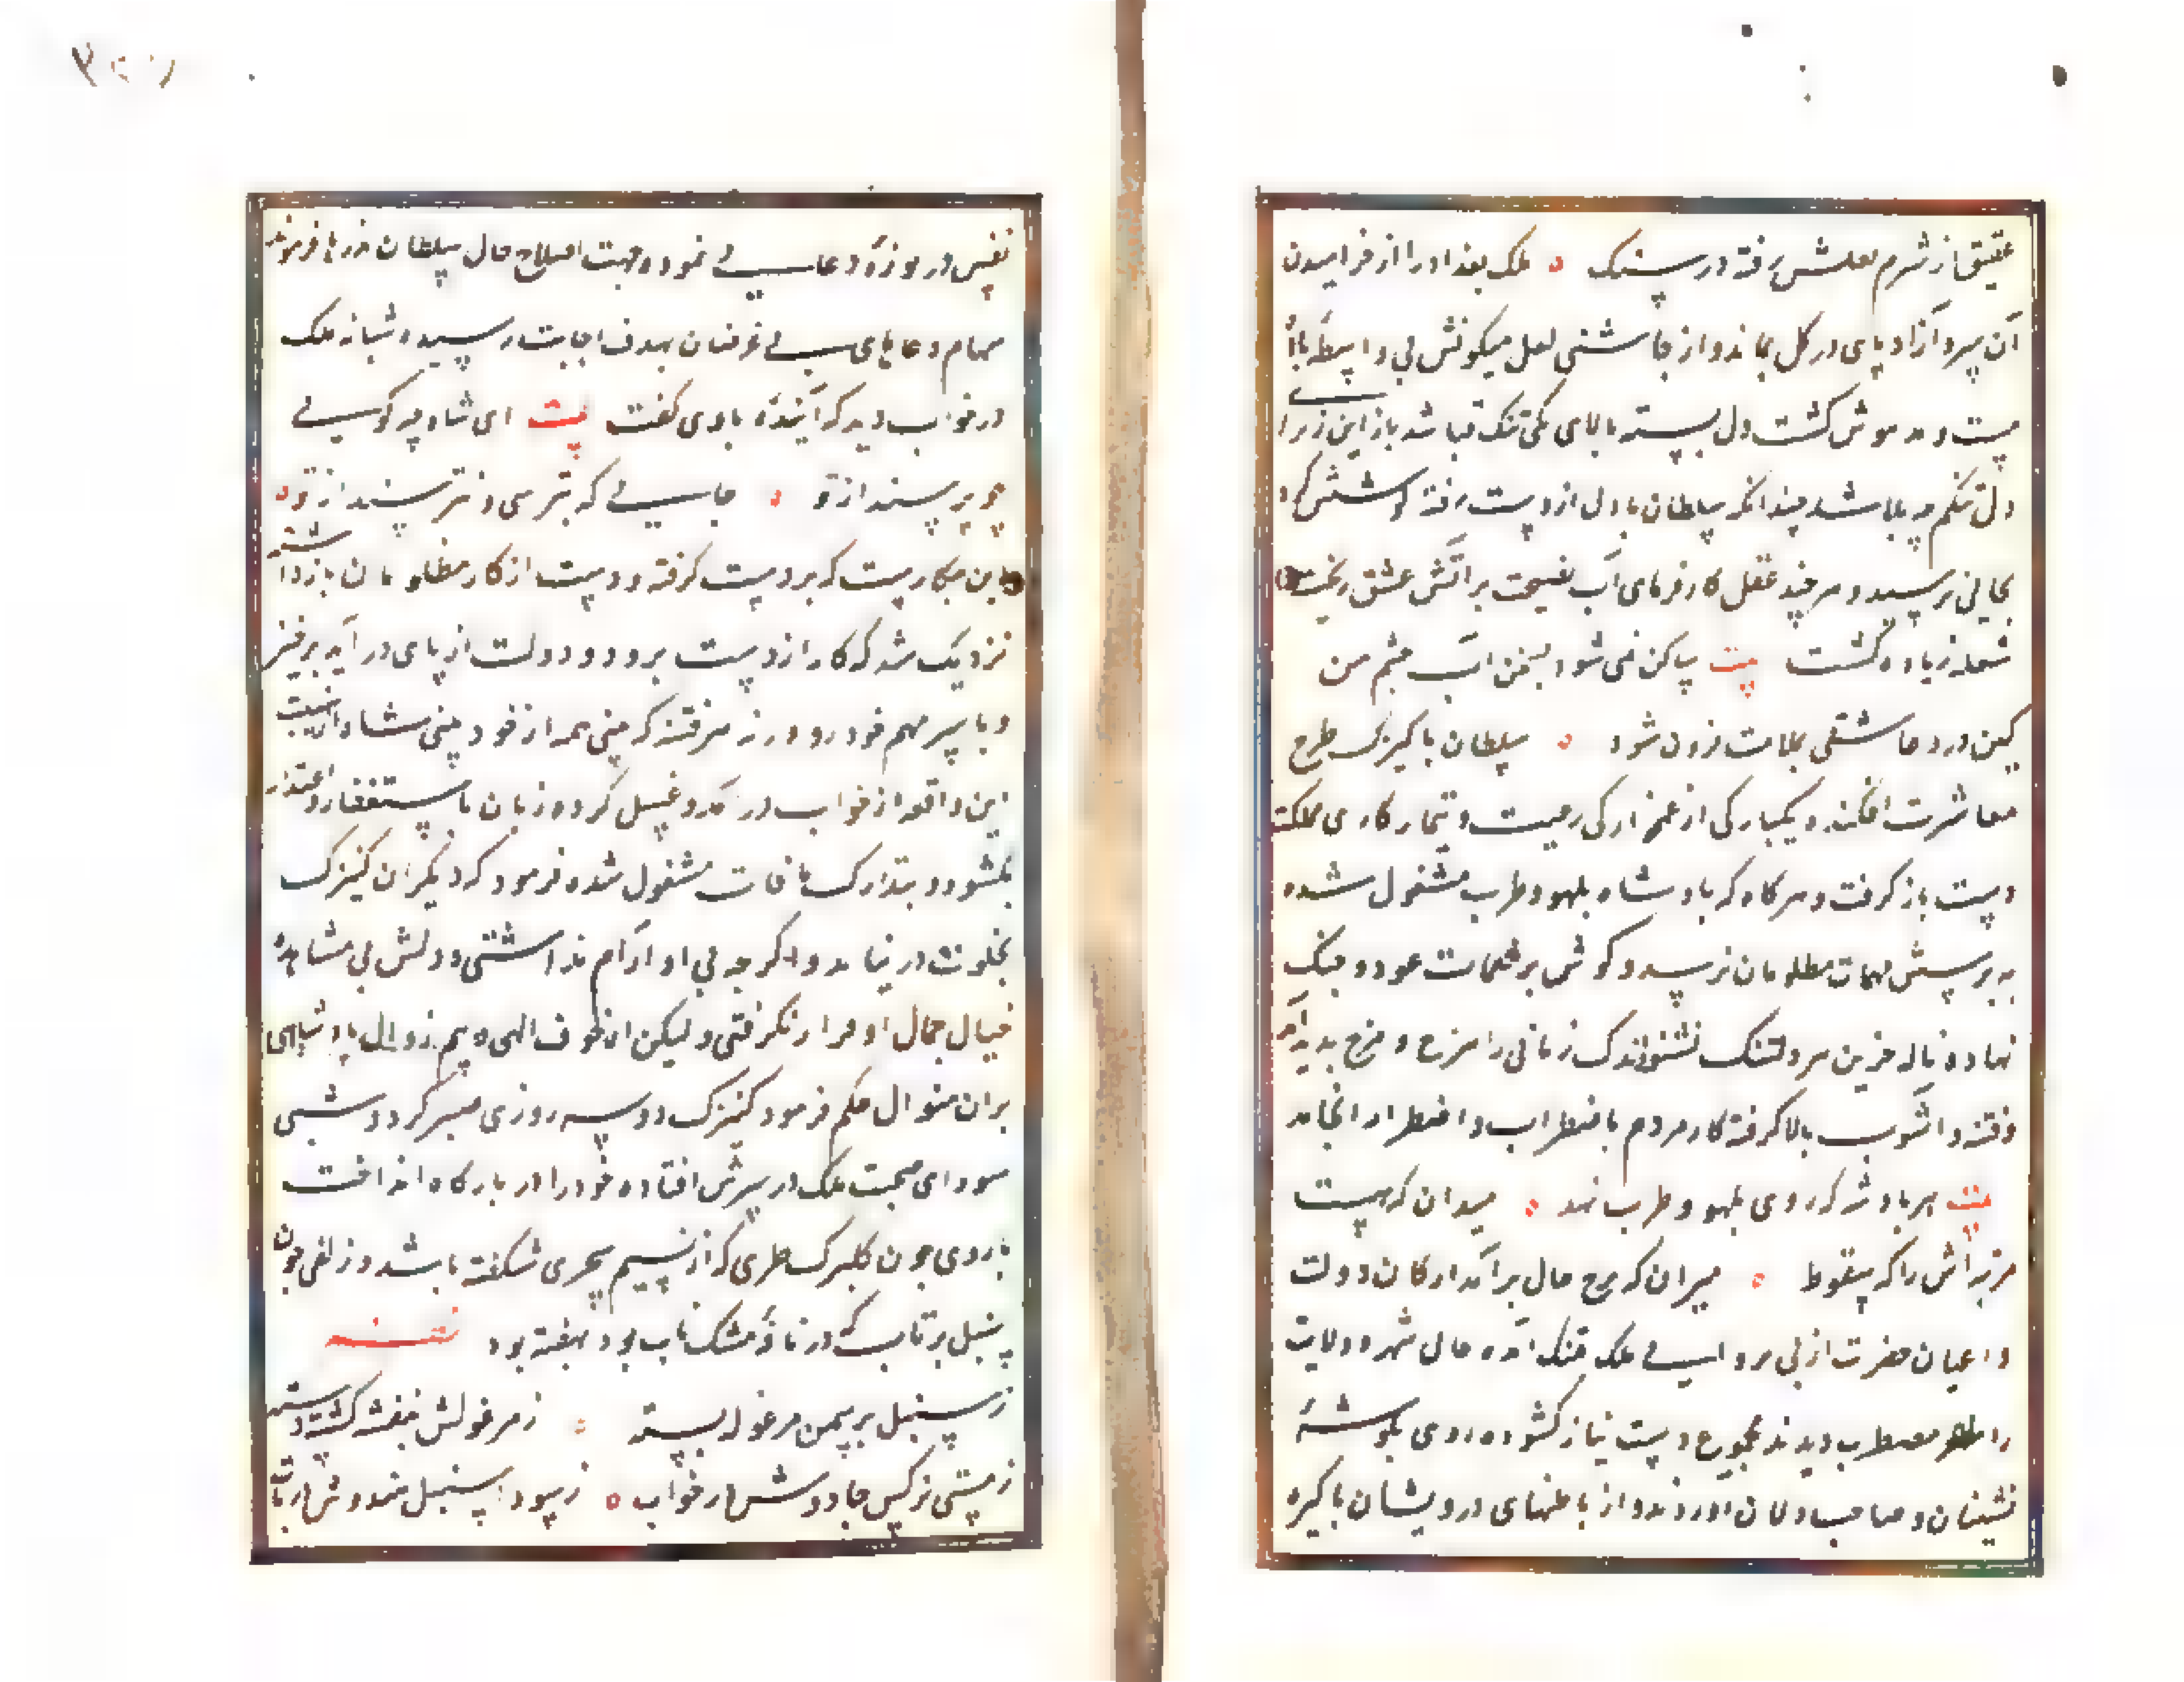 عقیق از شرم لعلش رفته در سنک ملک بغداد را از خرامیدن
آن سرو آزاد پای در کل بماند و از چاشنی لعل میکونش بی واسطه باده
مست و مدهوش کشت دل بسته بالای یکی تنک قبا شد باز این
دل تنکم چه بلا شد چندانکه سلطان با دل از دست رفته کوشش کرد
بجائی نرسید و هر چند عقل کارفرمای آب نصیحت بر آتش عشق ریخت
شعله زیاده کشت بیت ساکن نمی شود بسخن آب چشم من
کین درد عاشقی بملامت فزون شود سلطان با کنیزک طرح
معاشرت افکنده یکبارکی از غمخوارکی رعیت و تیمار کار مملکت
دست باز کرفت و هرکاه که پادشاه بلهو و طرب مشغول شده
به پرسش مهمات مظلومان نرسد و کوش بر نغمات عود و چنک
نهاده ناله حزین هر دلتنک نشنود اندک زمانی را هرج و مرج پدید آمد
و فتنه و آشوب بالا کرفته کار مردم باضطراب و اضطرار انجامد
بیت هر پادشه که روی بلهو و طرب نهد میدان که هست
مرتبه اش را که سقوط میران که برج حال برآمد ارکان دولت
و اعیان حضرت از بی پروایی ملک تنک آمده حال شهر و ولایت
را مضطرب دیدند بمجموع دست نیاز کشوده روی بکوشهٔ
نشینان و صاحب دلان آوردند و از باطنهای درویشان پاکیزه
نفس در یوزهٔ دعایی نموده جهت اصلاح حال سلطان نذرها فرمودند
سهام دعاهای بی غرضان بهدف اجابت رسیده شبانه ملک
در خواب دید که آیندهٔ با وی گفت بیت ای شاه چه کویی
چو پرسند از تو جایی که بترسی و نترسند از تو
این چکاریست که بر دست کرفته و دست از کار مظلومان باز داشته
نزدیک شد که کار از دست برود و دولت از پای در آید برخیز
و با سر مهم خود رو ورنه هر فتنه که بینی همه از خود بینی شاه از هیبت
این واقعه از خواب در آمد و غسل کرده زبان باستغفار و اعتذار
بکشود و بتدارک مافات مشغول شده فرمود که دیکر آن کنیزک
بخلوت در نیاید و اکر چه بی او آرام نداشتی و دلش بی مشاهدهٔ
خیال جمال او قرار نکرفتی ولیکن از خوف الهی و بیم زوال پادشاهی
بران منوال حکم فرمود کنیزک دو سه روزی صبر کرد و شبی
سودای صحبت ملک در سرش افتاده خود را در بارکاه انداخت
با روی چون کلبرک طری که از نسیم سحری شکفته باشد و زلفی چون
سنبل پرتاب که در نافهٔ مشک ناب بود نهفته بود
ز سنبل بر سمن مرغوله بسته ز مرغولش بنفشه کشته دسته
ز مستی نرکس جادوش در خواب ز سودا سنبل هندوش در تاب